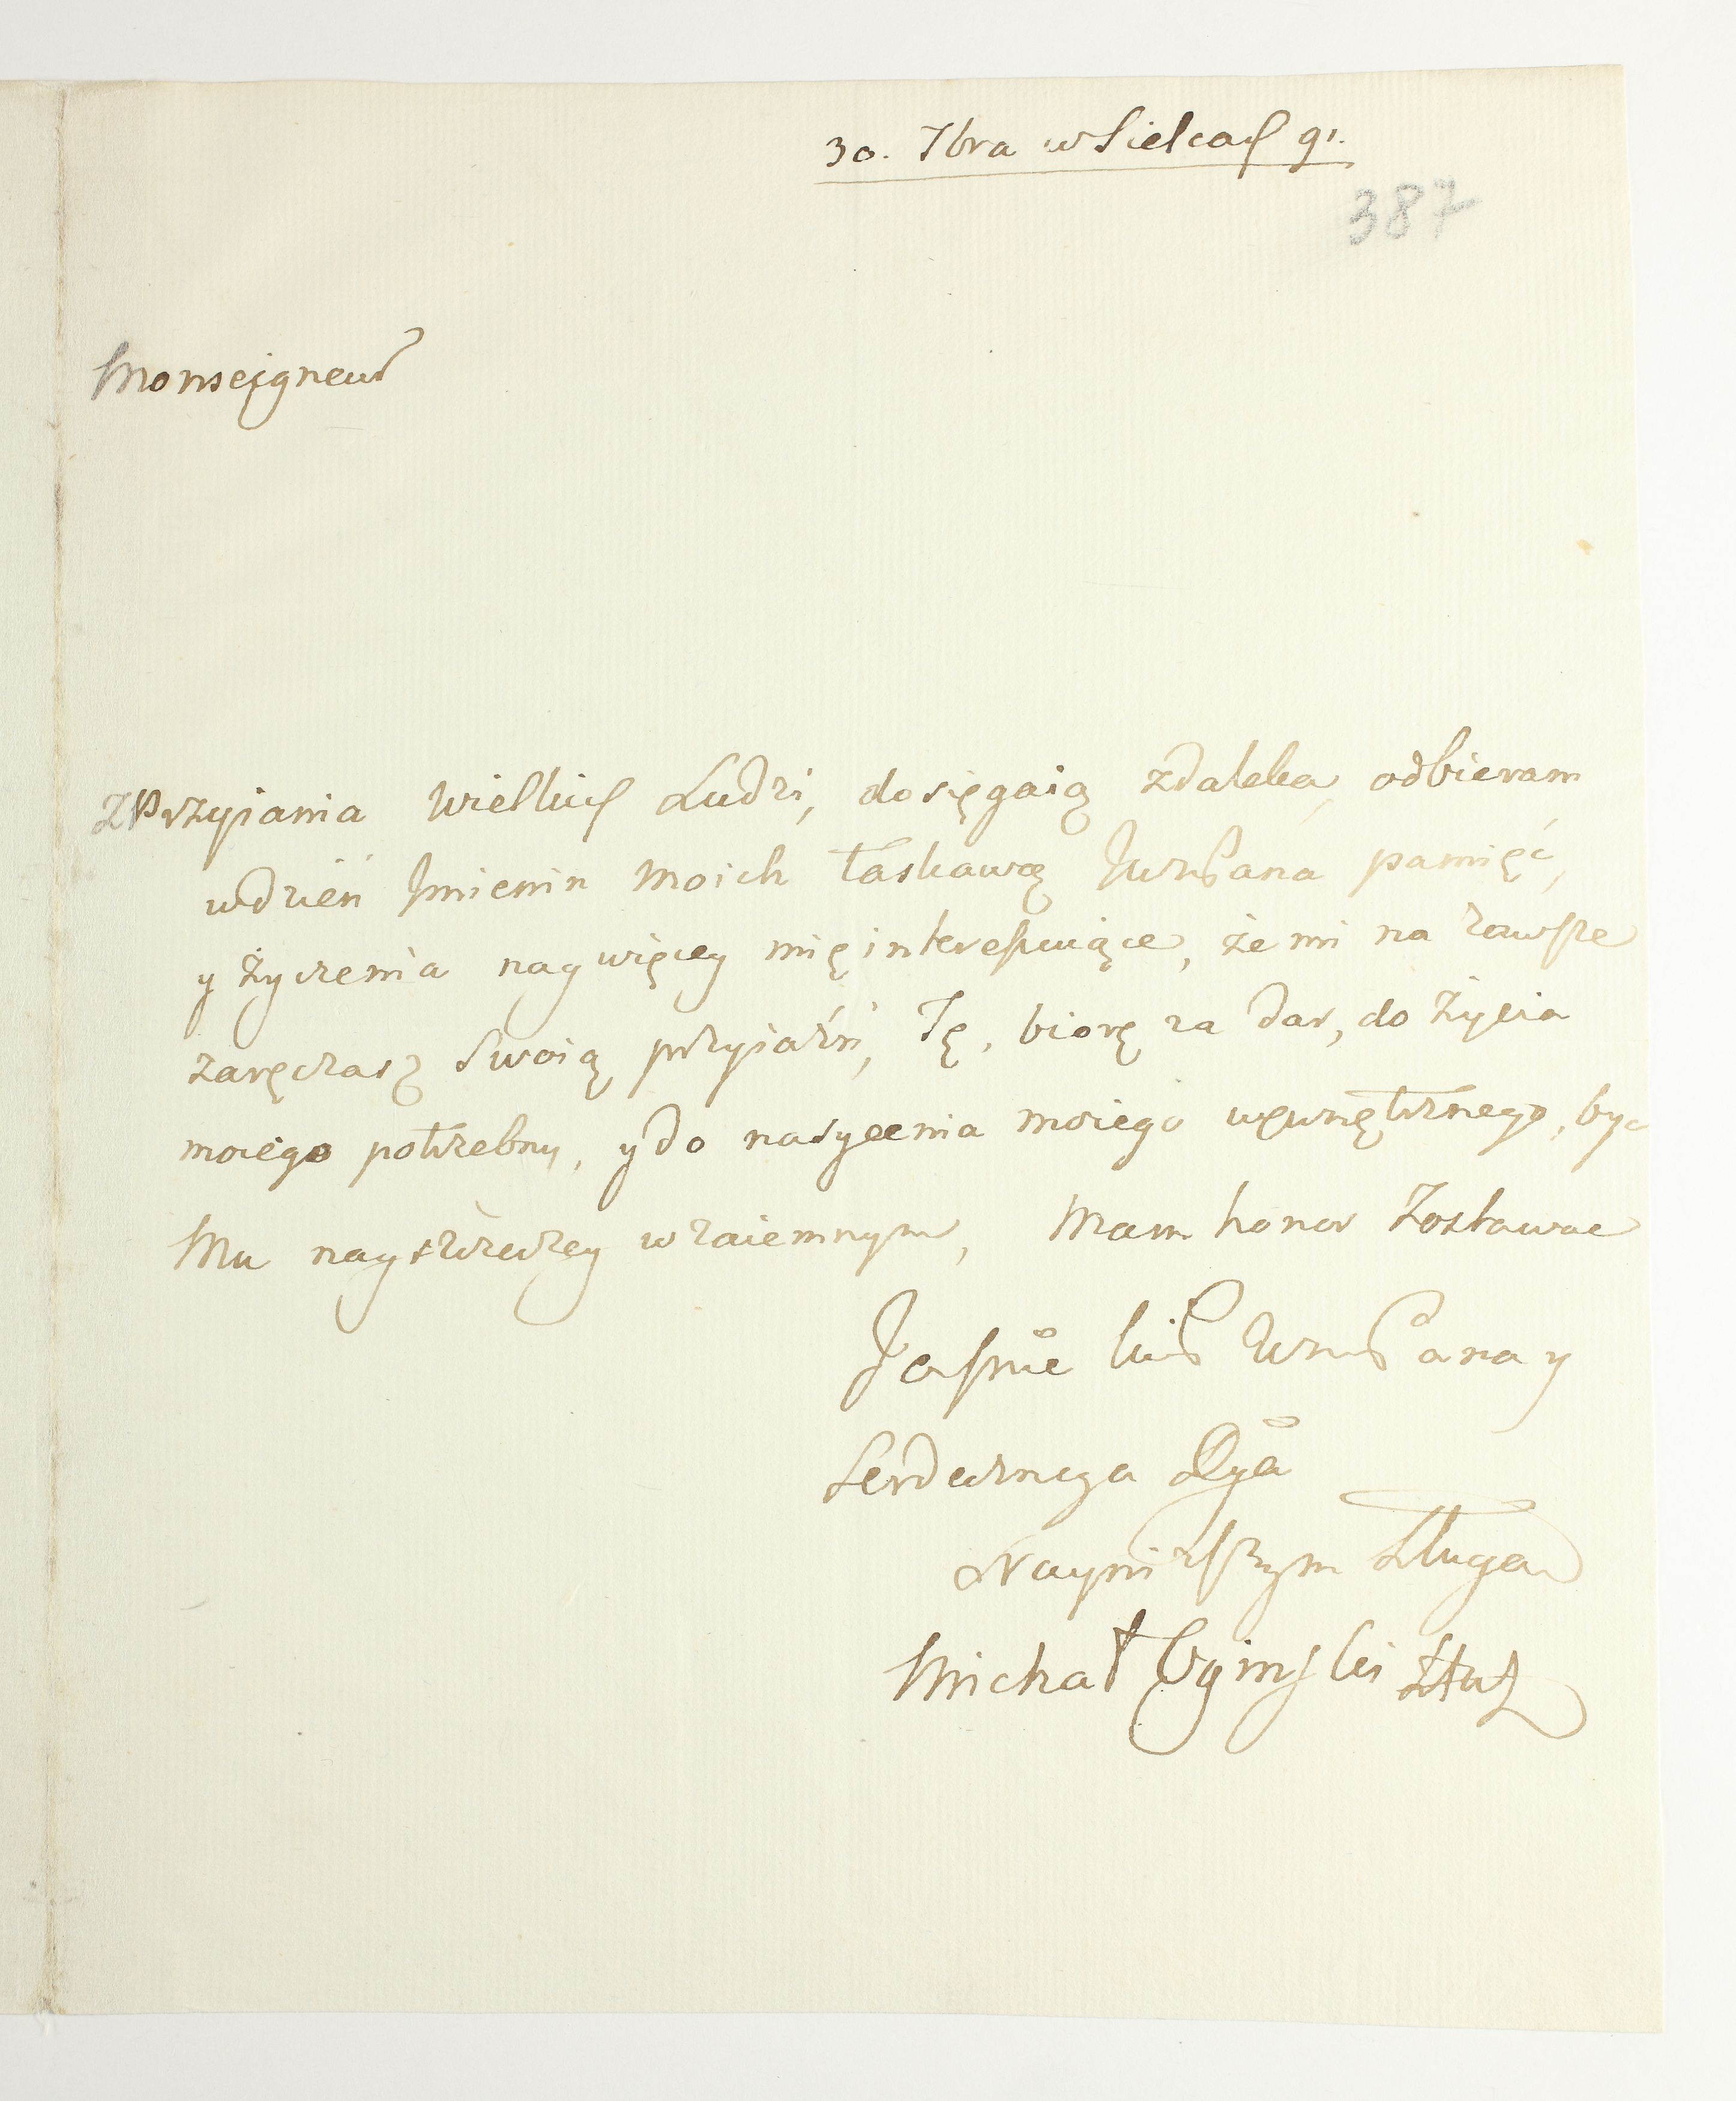 30. 7bra w Sielcach 91.
387
Monseigneur
Zprzyiania Wielkich Ludzi, dosięgaią zdaleka, odbieram
wdzień Jmienin Moich łaskawą JWWPana pamięć,
y życzenia naywięcey mię interessuiące, że mi na zawsze
zaręczasz Swoią przyiaźń, Tę, biorę za dar, do życia
moiego potrzebny, y do nasycenia moiego wewnętrznego, byc
Mu nayszczerzey wzaiemnym, Mam honor Zostawac
Jasnie WWPana y
Serdecznego
Nayniższym Sługą
Michał Ogiński